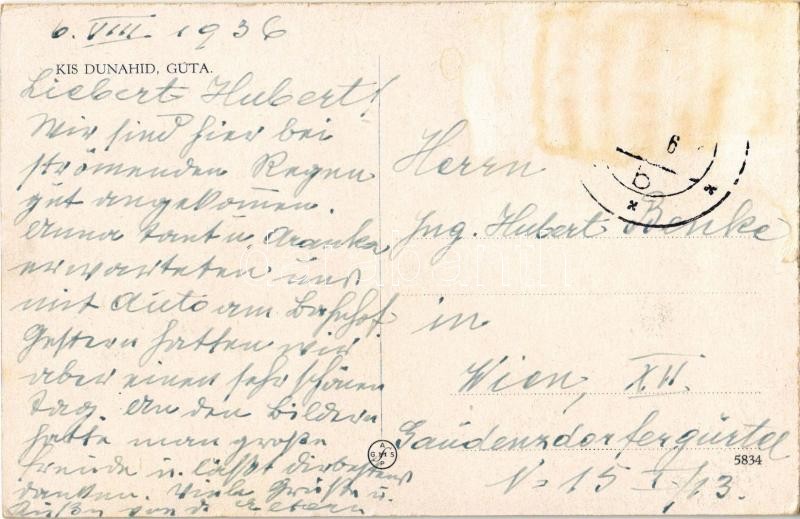 6. VIII. 1936
KIS DUNAHID, GÚTA.
Liebert Hubert!
Wir sind hier bei
strömenden Regen
gut angekommen.
Anna tant u. Aranka
erwarteten uns
mit Auto am Bahnhof.
Gestern hatten wir
aber einen sehr schönen
Tag. An den Bildern
hatte man große
Freude u. läßt dir bestens
danken. Viele Grüße u.
von d. Eltern
6
b
Herrn
Ing. Hubert Benke
in
Wien, XII.
Gaudenzdorfergürtel
N. 15 I/13.
5834